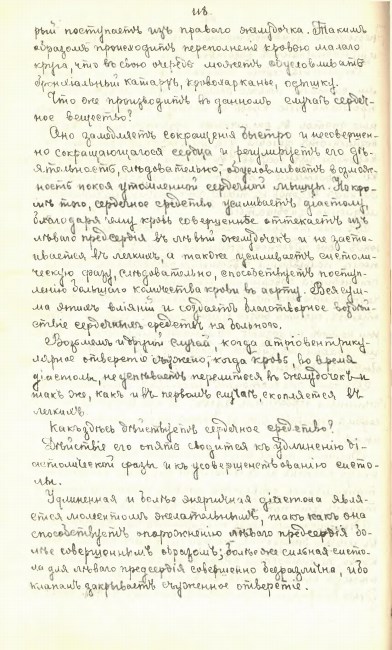 118.
рый поступаетъ изъ праваго желудочка. Такимъ
образомъ происходитъ переполнение кровью малаго
круга, что въ свою очередь можетъ обусловливать
бронхіальный катарръ, кровохарканье, одышку.
Что же производитъ въ данномъ случаѣ сердеч-
ное вещество?
Оно замедляетъ сокращенія быстро и несовершен-
но сокращающагося сердца и регулируетъ его дѣ-
ятельность, слѣдовательно, обусловливаетъ возмож-
ность покоя утомленной сердечной мышцы. Но кро-
мѣ того, сердечное средство усиливаетъ діастолу,
благодаря чему кровь совершеннѣе оттекаетъ изъ
лѣваго предсердія въ лѣвый желудочекъ и не заста-
ивается въ легкихъ, а также усиливаетъ систоли-
ческую фазу, слѣдовательно, способствуетъ поступ-
ленію большаго количества крови въ аорту. Вся сум-
ма этихъ вліяній и создаетъ благотворное воздѣй-
ствіе сердечныхъ средствъ на больного.
Возьмемъ и другой случай, когда атріовентрику-
лярное отверстіе съужено, когда кровь, во время
діастолы, не успѣваетъ перелиться въ желудочекъ и
такъ же, какъ и въ первомъ случаѣ, скопляется въ
легкихъ.
Какъ здѣсь дѣйствуетъ сердечное средство?
Дѣйствіе его опять сводится къ удлиненію ді-
астолической фазы и къ усовершенствованію систо-
лы.
Удлиненная и болѣе энергичная діастола явля-
ется моментомъ желательнымъ, такъ какъ она
способствуетъ опорожненію лѣваго предсердія бо-
лѣе совершеннымъ образомъ; болѣе же сильная систо-
ла для лѣваго предсердія совершенно безразлична, ибо
клапанъ закрываетъ съуженное отверстіе.